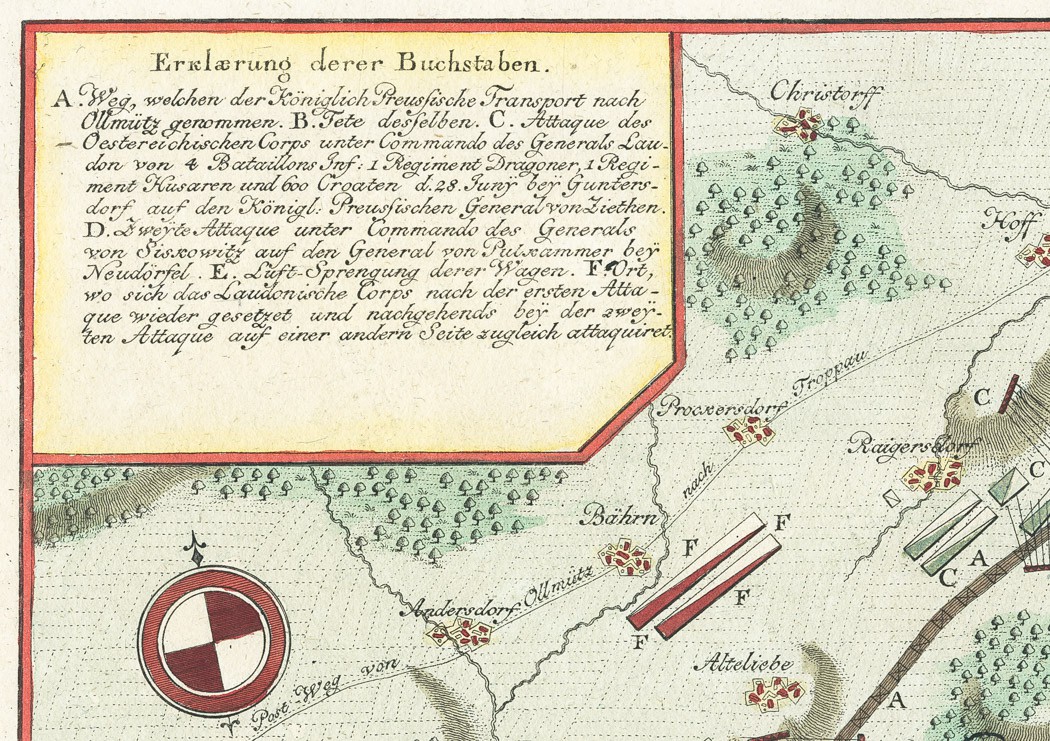 Erklærung derer Buchstaben.
A. Weg, welchen der Königlich Preussische Transport nach
Ollmütz genommen. B. Tete desselben. C. Attaque des
Oestereichischen Corps unter Commando des Generals Lau-
don von 4 Bataillons Inf: 1 Regiment Dragoner, 1 Regi-
ment Husaren und 600 Croaten d. 28. Junÿ beÿ Gunters-
dorf auf den Königl: Preussischen General von Ziethen.
D. Zweÿte Attaque unter Commando des Generals
von Siskowitz auf den General von Pulkammer beÿ
Neudörfel. E. Luft-Sprengung derer Wagen. F. Ort,
wo sich das Laudonische Corps nach der ersten Atta-
que wieder gesetzet und nachgehends beÿ der zweÿ-
ten Attaque auf einer andern Seite zugleich attaquiret.
Christorff
Hoff
Troppau
Prockersdorf
C
Raigersdorf
nach
C
Bährn
F
F
A
C
Ollmütz
F
Andersdorf
F
Alteliebe
Post-Weg von
A